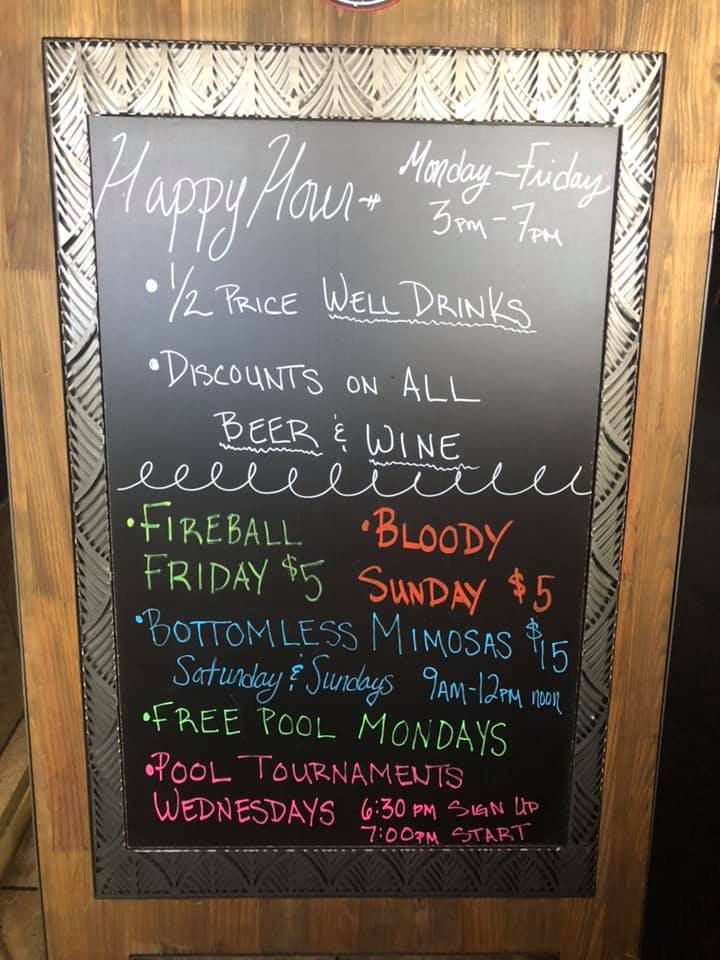 Happy Hour → Monday-Friday
3pm-7pm
• 1/2 PRICE WELL DRINKS
• DISCOUNTS ON ALL
BEER & WINE
• FIREBALL
FRIDAY $5
• BLOODY
SUNDAY $5
• BOTTOMLESS MIMOSAS $15
Saturday & Sundays 9AM-12PM noon
• FREE POOL MONDAYS
• POOL TOURNAMENTS
WEDNESDAYS 6:30 PM SIGN UP
7:00PM START